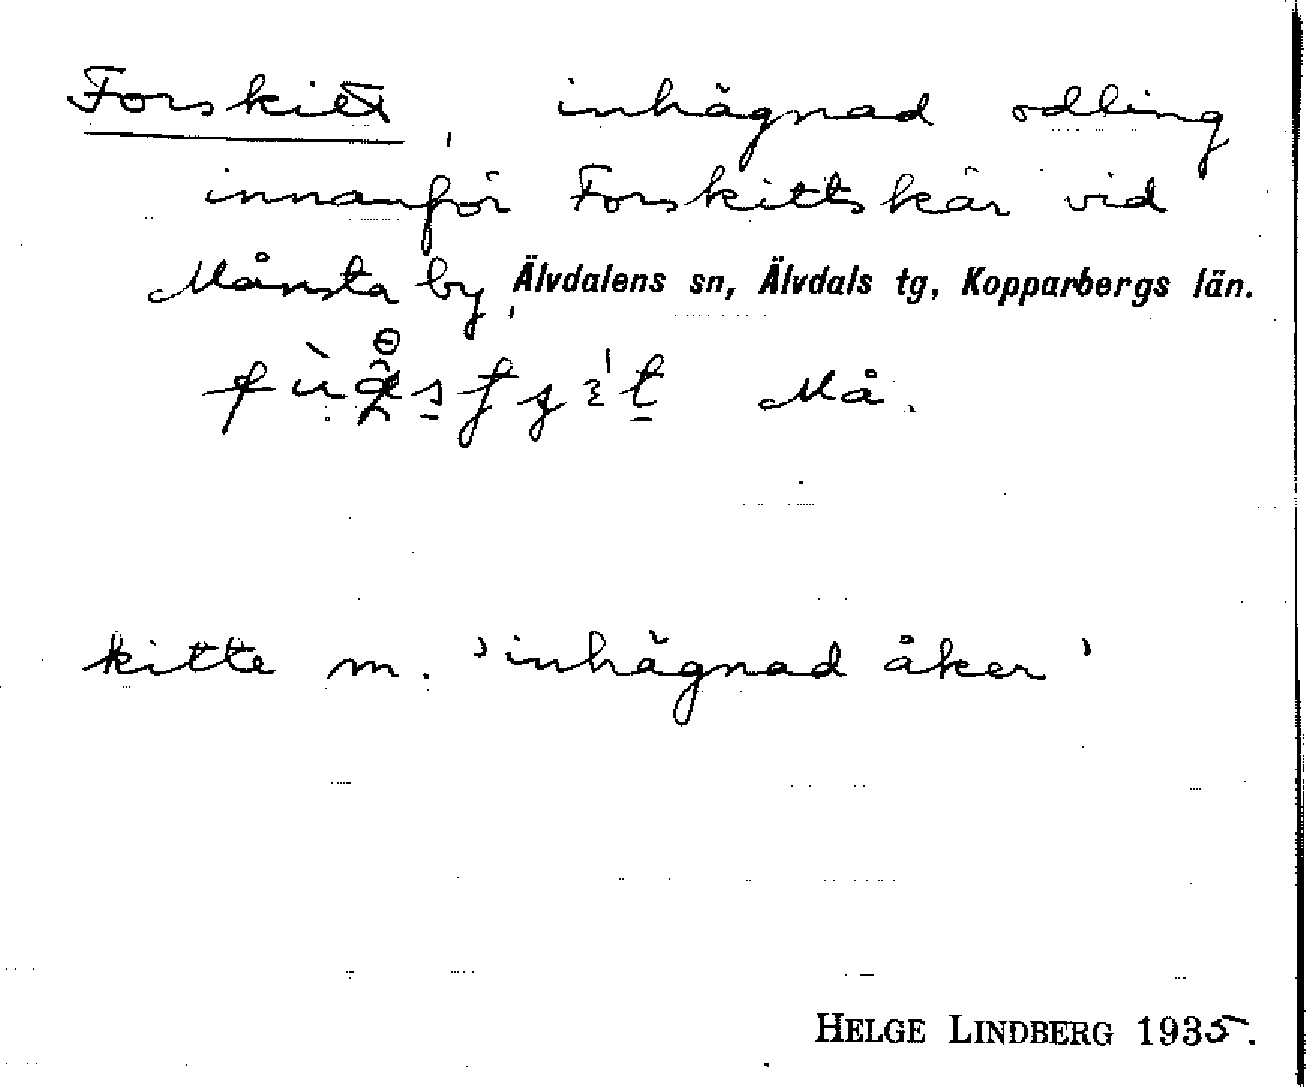 Forskitt, inhägnad odling
innanför Forskittskär vid
Månsta by, Älvdalens sn, Älvdals tg, Kopparbergs län.
Må.
kitte m. 'inhägnad åker'
HELGE LINDBERG 1935.